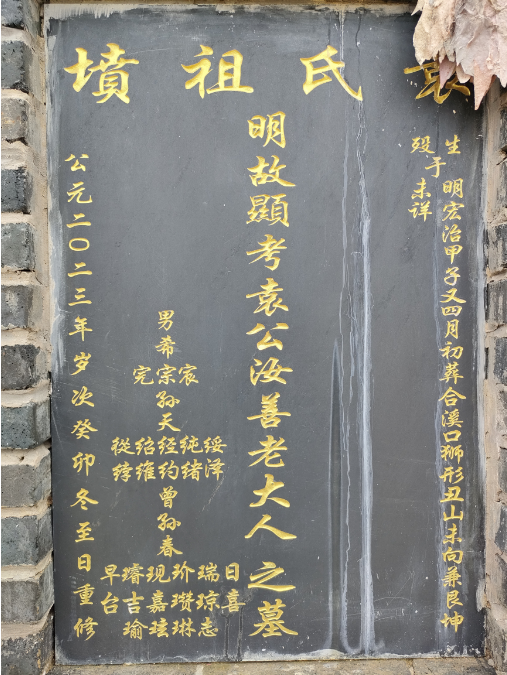 袁氏祖墳
生 明宏治甲子又四月初葬合溪口狮形丑山未向兼艮坤
殁于未详
明故顯考袁公汝善老大人之墓
男希
宪宗宸
孙天
從绍经纯绥
綍维约绪泽
曾孙春
早璿现玠瑞日
台吉嘉瓒琼喜
瑜玹琳志
公元二〇二三年岁次癸卯冬至日重修